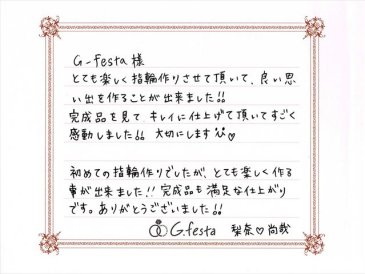 G-festa 様
とても楽しく指輪作りさせて頂いて、良い思
い出を作ることが出来ました!!
完成品を見て キレイに仕上げて頂いてすごく
感動しました!! 大切にします♡
初めての指輪作りでしたが、とても楽しく作る
事が出来ました!! 完成品も満足な仕上がり
です。ありがとうございました!!
G.festa 梨奈♡尚哉